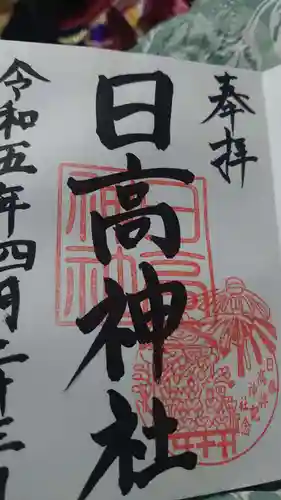 奉拝
日高神社
令和五年四月二十三日